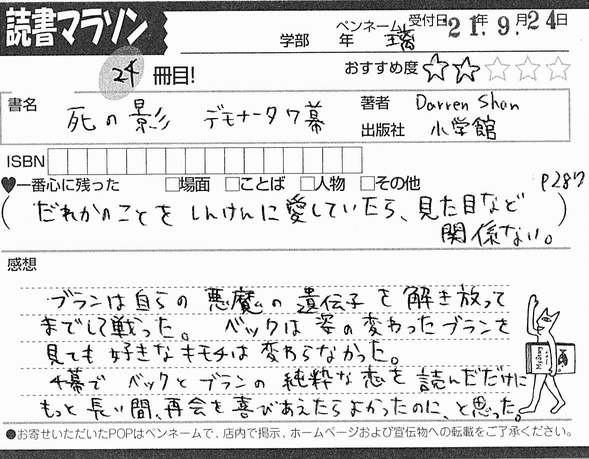 読書マラソン
学部 年 ペンネーム 受付日 21年 9月 24日
24 冊目!
おすすめ度 ★★☆☆☆
書名 死の影 デモナータ7幕
著者 Darren Shan
出版社 小学館
ISBN
♥一番心に残った □場面 □ことば □人物 □その他 P287
(だれかのことをしんけんに愛していたら、見た目など
関係ない。)
感想
ブランは自らの悪魔の遺伝子を解き放って
までして戦った。 ベックは姿の変わったブランを
見ても好きなキモチは変わらなかった。
4幕でベックとブランの純粋な恋を読んだだけに
もっと長い間、再会を喜びあえたらよかったのに、と思った。
●お寄せいただいたPOPはペンネームで、店内で掲示、ホームページおよび宣伝物への転載をご了承ください。